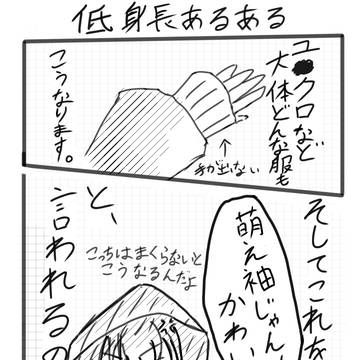 低身長あるある
ユ●クロなど
大体どんな服も
こうなります。
手が出ない
そしてこれを
萌え袖じゃん
かわい
と、
言われるの
こっちはまくらないと
こうなるんだよ